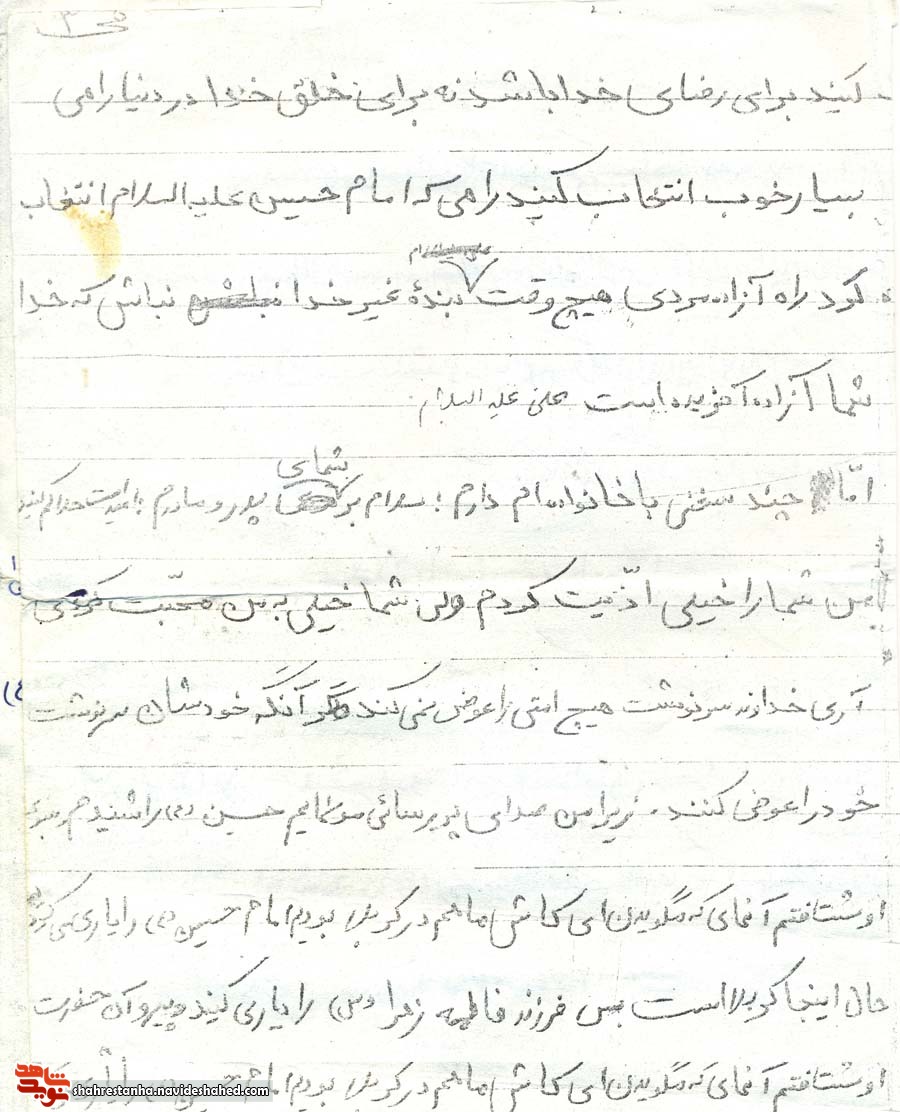 ص ۳
کنید برای رضای خدا باشد نه برای خلق خدا در دنیا راهی
بسیار خوب انتخاب کنید راهی که امام حسین علیه السلام انتخاب
کرد راه آزاده مردی هیچ وقت بندهٔ غیر خدا نباش که خدا
شما آزاده آفریده است علی علیه السلام
امّا چند سخنی با خانواده ام دارم : سلام بر شمای پدر و مادرم امید است حلالم کنید
من شما را خیلی اذّیت کردم ولی شما خیلی به من محبّت کردی
آری خداوند سرنوشت هیچ امتی را عوض نمی کند مگر آنکه خودشان سرنوشت
خود را عوض کنند . زیرا من صدای حسین را شنیدم
او شتافتم آقای که میگویید ای کاش ما هم در کربلا بودیم امام حسین (ع) را یاری می کردیم
حال اینجا کربلا است پس فرزند فاطمه زهرا (س) را یاری کنید و پیرو آن حضرت
او شتافتم آقای که میگویید ای کاش ما هم در کربلا بودیم امام
شاهد
نوید
shahrestanha.navideshahed.com